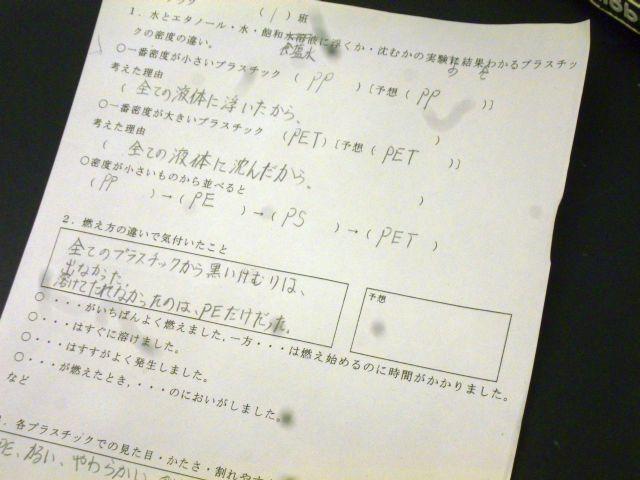 （１）班
１．水とエタノール・水・飽和水溶液に浮くか・沈むかの実験の結果をわかるプラスチックの密度の違い。
食塩水
○一番密度が小さいプラスチック（PP）［予想（PP）］
考えた理由
（全ての液体に浮いたから。）
○一番密度が大きいプラスチック（PET）［予想（PET）］
考えた理由
（全ての液体に沈んだから。）
○密度が小さいものから並べると
（PP）→（PE）→（PS）→（PET）
２．燃え方の違いで気付いたこと
全てのプラスチックから黒いけむりは、
出なかった。
溶けてたれなかったのは、PEだけだった。
予想
○・・・がいちばんよく燃えました。一方・・・は燃え始めるのに時間がかかりました。
○・・・はすぐに溶けました。
○・・・はすすがよく発生しました。
○・・・が燃えたとき，・・・のにおいがしました。
など
．各プラスチックでの見た目・かたさ・割れやす
PE、かるい、やわらかい、